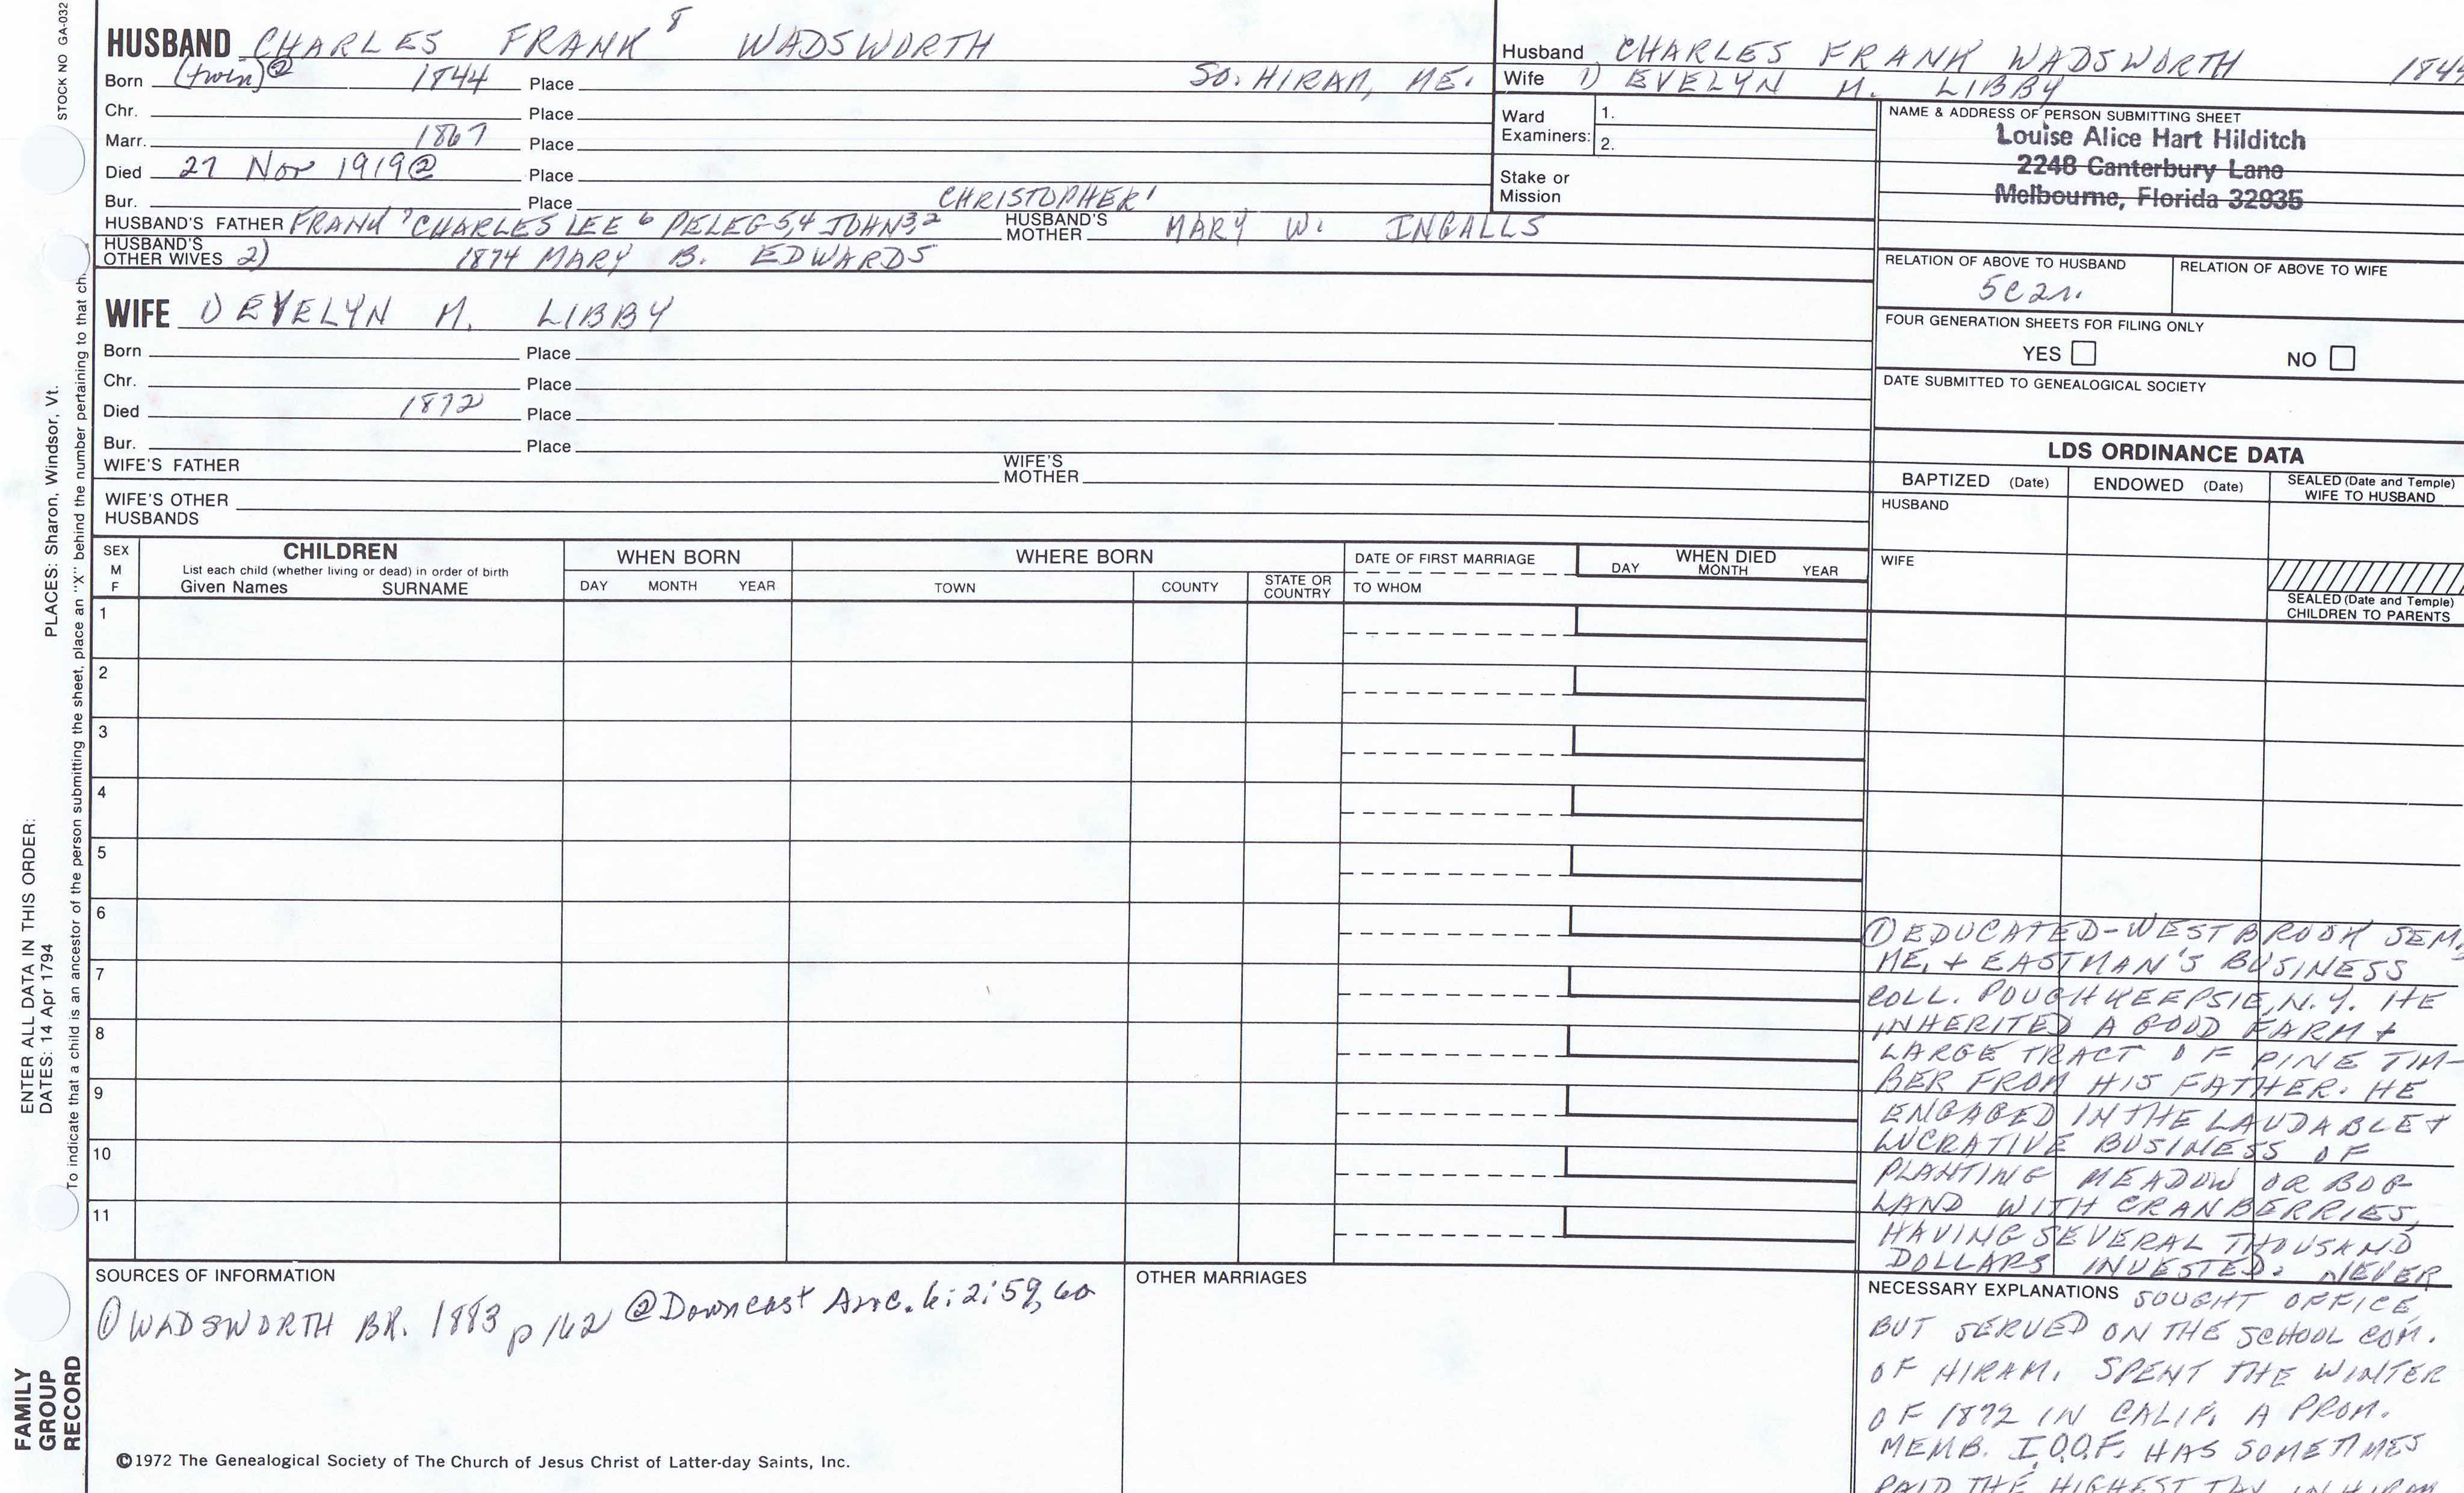 STOCK NO GA-032
PLACES: Sharon, Windsor, Vt.
ENTER ALL DATA IN THIS ORDER:
DATES: 14 Apr 1794
To indicate that a child is an ancestor of the person submitting the sheet, place an "X" behind the number pertaining to that ch
FAMILY
GROUP
RECORD
HUSBAND CHARLES FRANK 8 WADSWORTH
Born (twin) ② 1844 Place SO. HIRAM, ME.
Chr. Place
Marr. 1867 Place
Died 27 Nov 1919 ② Place
Bur. Place
CHRISTOPHER 1
HUSBAND'S FATHER FRANK 7 CHARLES LEE 6 PELEG 5,4 JOHN 3,2 HUSBAND'S MOTHER MARY W. INGALLS
HUSBAND'S OTHER WIVES 2) 1874 MARY B. EDWARDS
WIFE 1) EVELYN M. LIBBY
Born Place
Chr. Place
Died 1872 Place
Bur. Place
WIFE'S FATHER WIFE'S MOTHER
WIFE'S OTHER HUSBANDS
Husband CHARLES FRANK WADSWORTH
Wife 1) EVELYN M. LIBBY
Ward Examiners: 1.
2.
Stake or Mission
NAME & ADDRESS OF PERSON SUBMITTING SHEET
Louise Alice Hart Hilditch
2248 Canterbury Lane
Melbourne, Florida 32935
RELATION OF ABOVE TO HUSBAND RELATION OF ABOVE TO WIFE
5c2r.
FOUR GENERATION SHEETS FOR FILING ONLY
YES NO
DATE SUBMITTED TO GENEALOGICAL SOCIETY
LDS ORDINANCE DATA
BAPTIZED (Date) ENDOWED (Date) SEALED (Date and Temple) WIFE TO HUSBAND
HUSBAND
WIFE
SEALED (Date and Temple) CHILDREN TO PARENTS
SEX M F
CHILDREN
List each child (whether living or dead) in order of birth
Given Names SURNAME
WHEN BORN
DAY MONTH YEAR
WHERE BORN
TOWN COUNTY STATE OR COUNTRY
DATE OF FIRST MARRIAGE
TO WHOM
WHEN DIED
DAY MONTH YEAR
1
2
3
4
5
6
7
8
9
10
11
① EDUCATED-WESTBROOK SEM,
ME, + EASTMAN'S BUSINESS
COLL. POUGHKEEPSIE, N.Y. HE
INHERITED A GOOD FARM +
LARGE TRACT OF PINE TIM-
BER FROM HIS FATHER. HE
ENGAGED IN THE LAUDABLE +
LUCRATIVE BUSINESS OF
PLANTING MEADOW OR BOG
LAND WITH CRANBERRIES,
HAVING SEVERAL THOUSAND
DOLLARS INVESTED. NEVER
NECESSARY EXPLANATIONS SOUGHT OFFICE
BUT SERVED ON THE SCHOOL COM.
OF HIRAM. SPENT THE WINTER
OF 1872 IN CALIF. A PROM.
MEMB. I.O.O.F. HAS SOMETIMES
PAID THE HIGHEST TAX IN HIRAM
SOURCES OF INFORMATION
① WADSWORTH BR. 1883 p 162 ② Downeast Anc. 6:2:59,60
OTHER MARRIAGES
©1972 The Genealogical Society of The Church of Jesus Christ of Latter-day Saints, Inc.